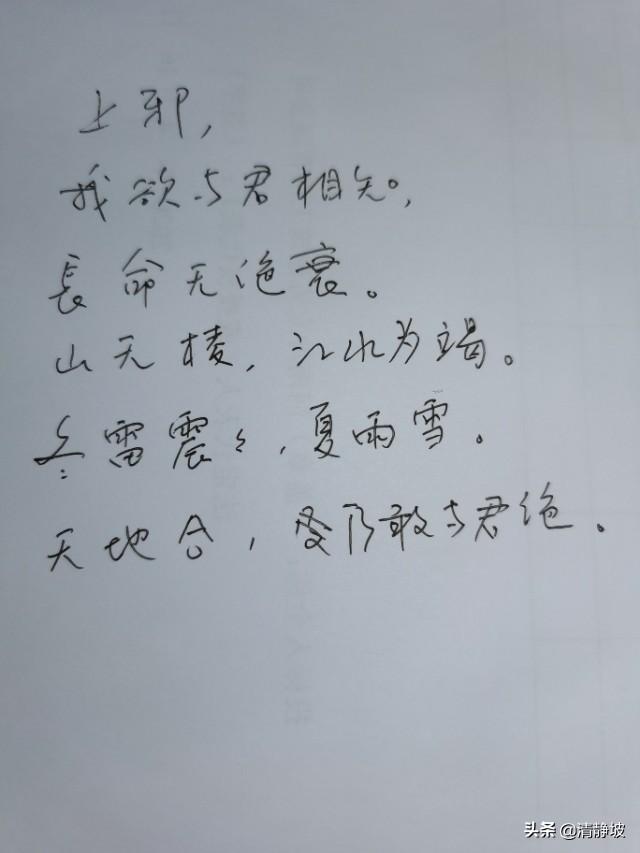 上邪，
我欲与君相知，
長命无绝衰。
山无棱，江水为竭。
冬雷震々，夏雨雪。
天地合，乃敢与君绝。
头条 @清静坡